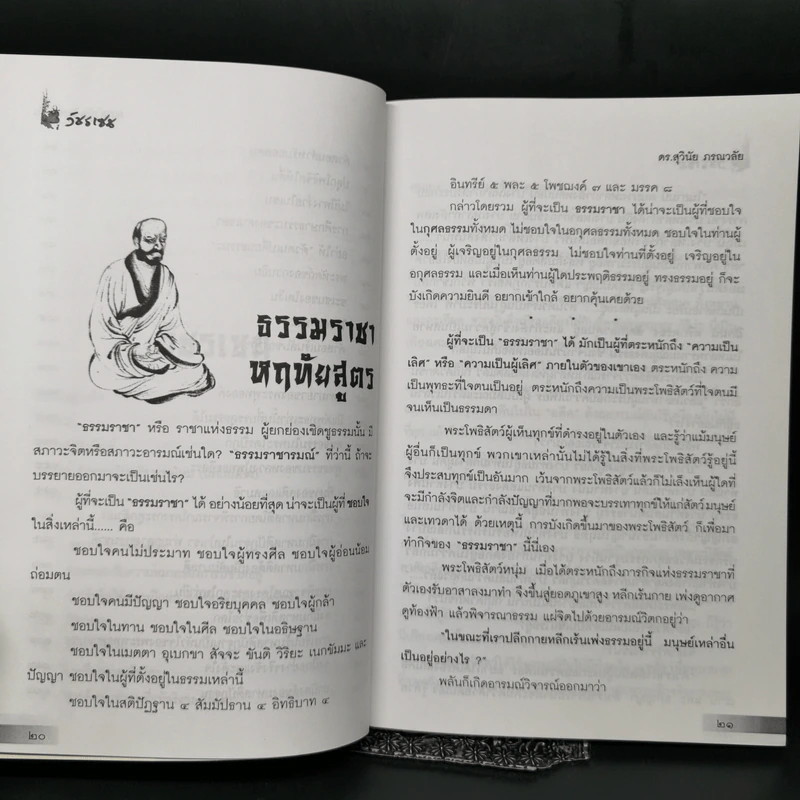 วัชรเซน
ธรรมราชา
หฤทัยสูตร
"ธรรมราชา" หรือ ราชาแห่งธรรม ผู้ยกย่องเชิดชูธรรมนั้น มี
สภาวะจิตหรือสภาวะอารมณ์เช่นใด? "ธรรมราชารมณ์" ที่ว่านี้ ถ้าจะ
บรรยายออกมาจะเป็นเช่นไร?
ผู้ที่จะเป็น "ธรรมราชา" ได้ อย่างน้อยที่สุด น่าจะเป็นผู้ที่ ชอบใจ
ในสิ่งเหล่านี้...... คือ
ชอบใจคนไม่ประมาท ชอบใจผู้ทรงศีล ชอบใจผู้อ่อนน้อม
ถ่อมตน
ชอบใจคนมีปัญญา ชอบใจอริยบุคคล ชอบใจผู้กล้า
ชอบใจในทาน ชอบใจในศีล ชอบใจในอธิษฐาน
ชอบใจในเมตตา อุเบกขา สัจจะ ขันติ วิริยะ เนกขัมมะ และ
ปัญญา ชอบใจในผู้ที่ตั้งอยู่ในธรรมเหล่านี้
ชอบใจในสติปัฏฐาน ๔ สัมมัปธาน ๔ อิทธิบาท ๔
๒๐
ดร.สุวินัย ภรณวลัย
อินทรีย์ ๕ พละ ๕ โพชฌงค์ ๗ และ มรรค ๘
กล่าวโดยรวม ผู้ที่จะเป็น ธรรมราชา ได้น่าจะเป็นผู้ที่ชอบใจ
ในกุศลธรรมทั้งหมด ไม่ชอบใจในอกุศลธรรมทั้งหมด ชอบใจในท่านผู้
ตั้งอยู่ ผู้เจริญอยู่ในกุศลธรรม ไม่ชอบใจท่านที่ตั้งอยู่ เจริญอยู่ใน
อกุศลธรรม และเมื่อเห็นท่านผู้ใดประพฤติธรรมอยู่ ทรงธรรมอยู่ ก็จะ
บังเกิดความยินดี อยากเข้าใกล้ อยากคุ้นเคยด้วย
. . .
ผู้ที่จะเป็น "ธรรมราชา" ได้ มักเป็นผู้ที่ตระหนักถึง "ความเป็น
เลิศ" หรือ "ความเป็นผู้เลิศ" ภายในตัวของเขาเอง ตระหนักถึง ความ
เป็นพุทธะที่ใจตนเป็นอยู่ ตระหนักถึงความเป็นพระโพธิสัตว์ที่ใจตนมี
จนเห็นเป็นธรรมดา
พระโพธิสัตว์ผู้เห็นทุกข์ที่ดำรงอยู่ในตัวเอง และรู้ว่าแม้มนุษย์
ผู้อื่นก็เป็นทุกข์ พวกเขาเหล่านั้นไม่ได้รู้ในสิ่งที่พระโพธิสัตว์รู้อยู่นี้
จึงประสบทุกข์เป็นอันมาก เว้นจากพระโพธิสัตว์แล้วก็ไม่เล็งเห็นผู้ใดที่
จะมีกำลังจิตและกำลังปัญญาที่มากพอจะบรรเทาทุกข์ให้แก่สัตว์มนุษย์
และเทวดาได้ ด้วยเหตุนี้ การบังเกิดขึ้นมาของพระโพธิสัตว์ ก็เพื่อมา
ทำกิจของ "ธรรมราชา" นี้นี่เอง
พระโพธิสัตว์หนุ่ม เมื่อได้ตระหนักถึงภารกิจแห่งธรรมราชาที่
ตัวเองรับอาสาลงมาทำ จึงขึ้นสู่ยอดภูเขาสูง หลีกเร้นกาย เพ่งดูอากาศ
ดูท้องฟ้า แล้วพิจารณาธรรม แผ่จิตไปด้วยอารมณ์วิตกอยู่ว่า
"ในขณะที่เราปลีกกายหลีกเร้นเพ่งธรรมอยู่นี้ มนุษย์เหล่าอื่น
เป็นอยู่อย่างไร ?"
พลันก็เกิดอารมณ์วิจารณ์ออกมาว่า
๒๑